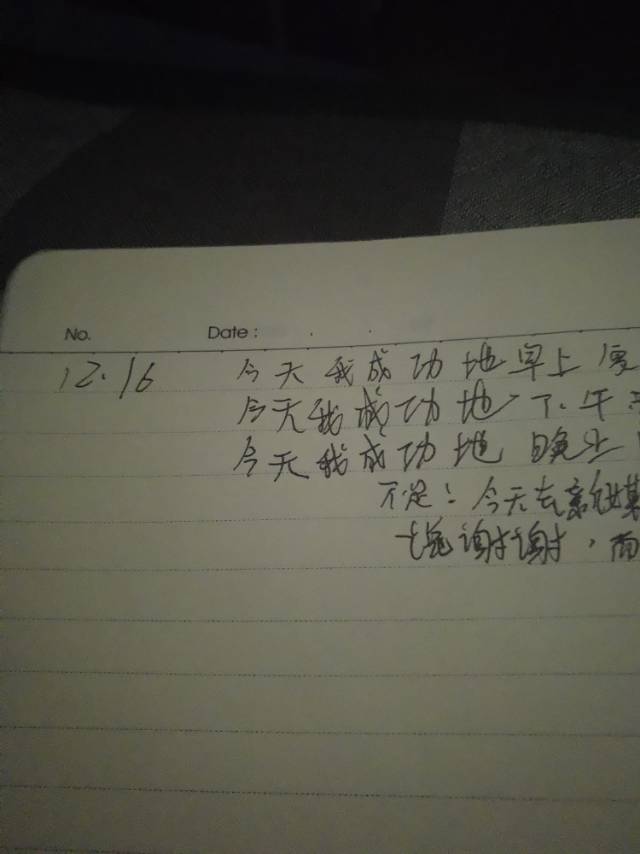 No. Date :
12.16 今天我成功地早上
今天我成功地下午
今天我成功地晚上
不足！今天去新媒
块谢谢，而